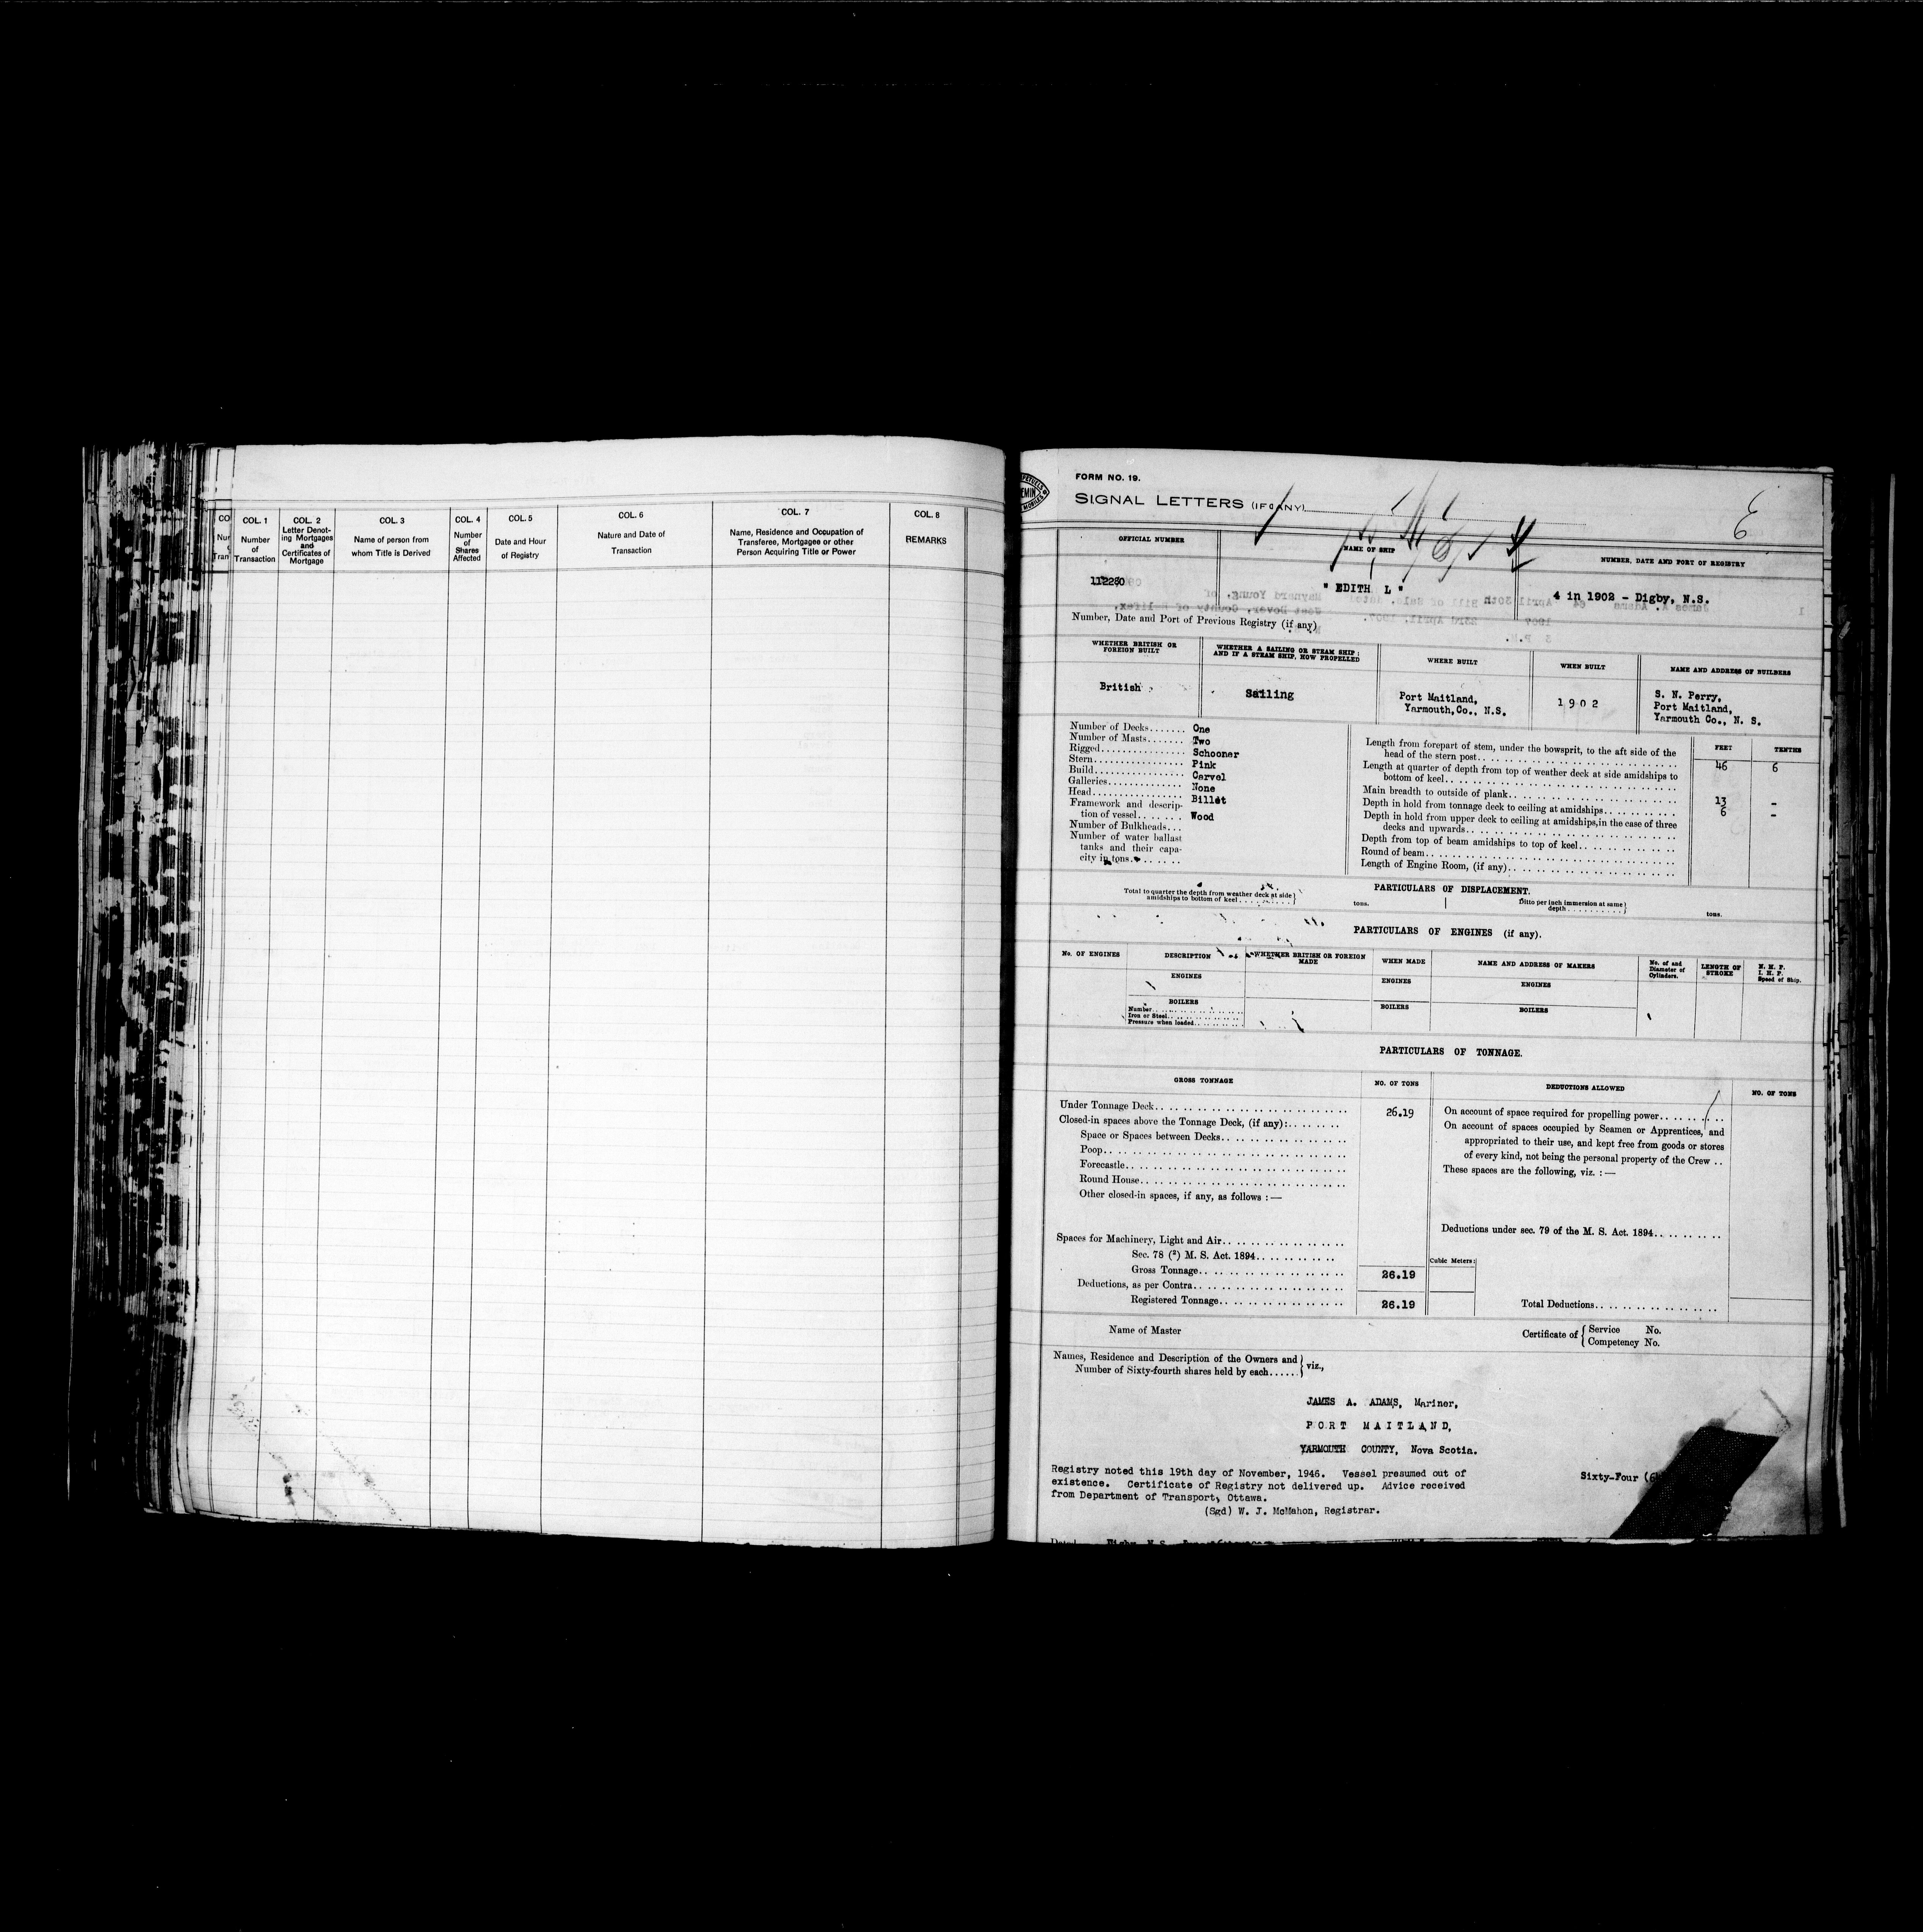 COL. 1
Number
of
Transaction
COL. 2
Letter Denot-
ing Mortgages
and
Certificates of
Mortgage
COL. 3
Name of person from
whom Title is Derived
COL. 4
Number
of
Shares
Affected
COL. 5
Date and Hour
of Registry
COL. 6
Nature and Date of
Transaction
COL. 7
Name, Residence and Occupation of
Transferee, Mortgagee or other
Person Acquiring Title or Power
COL. 8
REMARKS
FORM NO. 19.
SIGNAL LETTERS (IF ANY)
OFFICIAL NUMBER
NAME OF SHIP
NUMBER, DATE AND PORT OF REGISTRY
" EDITH L "
4 in 1902 - Digby, N.S.
Number, Date and Port of Previous Registry (if any)
WHETHER BRITISH OR
FOREIGN BUILT
WHETHER A SAILING OR STEAM SHIP;
AND IF A STEAM SHIP, HOW PROPELLED
WHERE BUILT
WHEN BUILT
NAME AND ADDRESS OF BUILDERS
British
Sailing
Port Maitland,
Yarmouth,Co., N.S.
1902
S. N. Perry,
Port Maitland,
Yarmouth Co., N. S.
Number of Decks....... One
Number of Masts....... Two
Rigged................ Schooner
Stern................. Pink
Build................. Carvel
Galleries.............. None
Head................. Billet
Framework and descrip-
tion of vessel........ Wood
Number of Bulkheads...
Number of water ballast
tanks and their capa-
city in tons........
FEET TENTHS
Length from forepart of stem, under the bowsprit, to the aft side of the
head of the stern post........ 46 6
Length at quarter of depth from top of weather deck at side amidships to
bottom of keel........
Main breadth to outside of plank........ 13 -
Depth in hold from tonnage deck to ceiling at amidships........ 6 -
Depth in hold from upper deck to ceiling at amidships,in the case of three
decks and upwards........
Depth from top of beam amidships to top of keel........
Round of beam........
Length of Engine Room, (if any)........
PARTICULARS OF DISPLACEMENT.
Total to quarter the depth from weather deck at side
amidships to bottom of keel........ tons.
Ditto per inch immersion at same
depth........ tons.
PARTICULARS OF ENGINES (if any).
No. OF ENGINES
DESCRIPTION
WHETHER BRITISH OR FOREIGN
MADE
WHEN MADE
NAME AND ADDRESS OF MAKERS
No. of and
Diameter of
Cylinders.
LENGTH OF
STROKE
N. H. P.
I. H. P.
Speed of Ship.
ENGINES
ENGINES
ENGINES
BOILERS
BOILERS
BOILERS
Number........
Iron or Steel........
Pressure when loaded........
PARTICULARS OF TONNAGE.
GROSS TONNAGE
NO. OF TONS
DEDUCTIONS ALLOWED
NO. OF TONS
Under Tonnage Deck........ 26.19
Closed-in spaces above the Tonnage Deck, (if any):.......
Space or Spaces between Decks........
Poop........
Forecastle........
Round House........
Other closed-in spaces, if any, as follows :—
Spaces for Machinery, Light and Air........
Sec. 78 (2) M. S. Act. 1894........
Gross Tonnage........ 26.19
Deductions, as per Contra........
Registered Tonnage........ 26.19
Cubic Meters:
On account of space required for propelling power........
On account of spaces occupied by Seamen or Apprentices, and
appropriated to their use, and kept free from goods or stores
of every kind, not being the personal property of the Crew ..
These spaces are the following, viz. :—
Deductions under sec. 79 of the M. S. Act. 1894........
Total Deductions........
Name of Master
Certificate of { Service No.
Competency No.
Names, Residence and Description of the Owners and
Number of Sixty-fourth shares held by each...... } viz.,
JAMES A. ADAMS, Mariner,
PORT MAITLAND,
YARMOUTH COUNTY, Nova Scotia.
Sixty-Four
Registry noted this 19th day of November, 1946. Vessel presumed out of
existence. Certificate of Registry not delivered up. Advice received
from Department of Transport, Ottawa.
(Sgd) W. J. McMahon, Registrar.